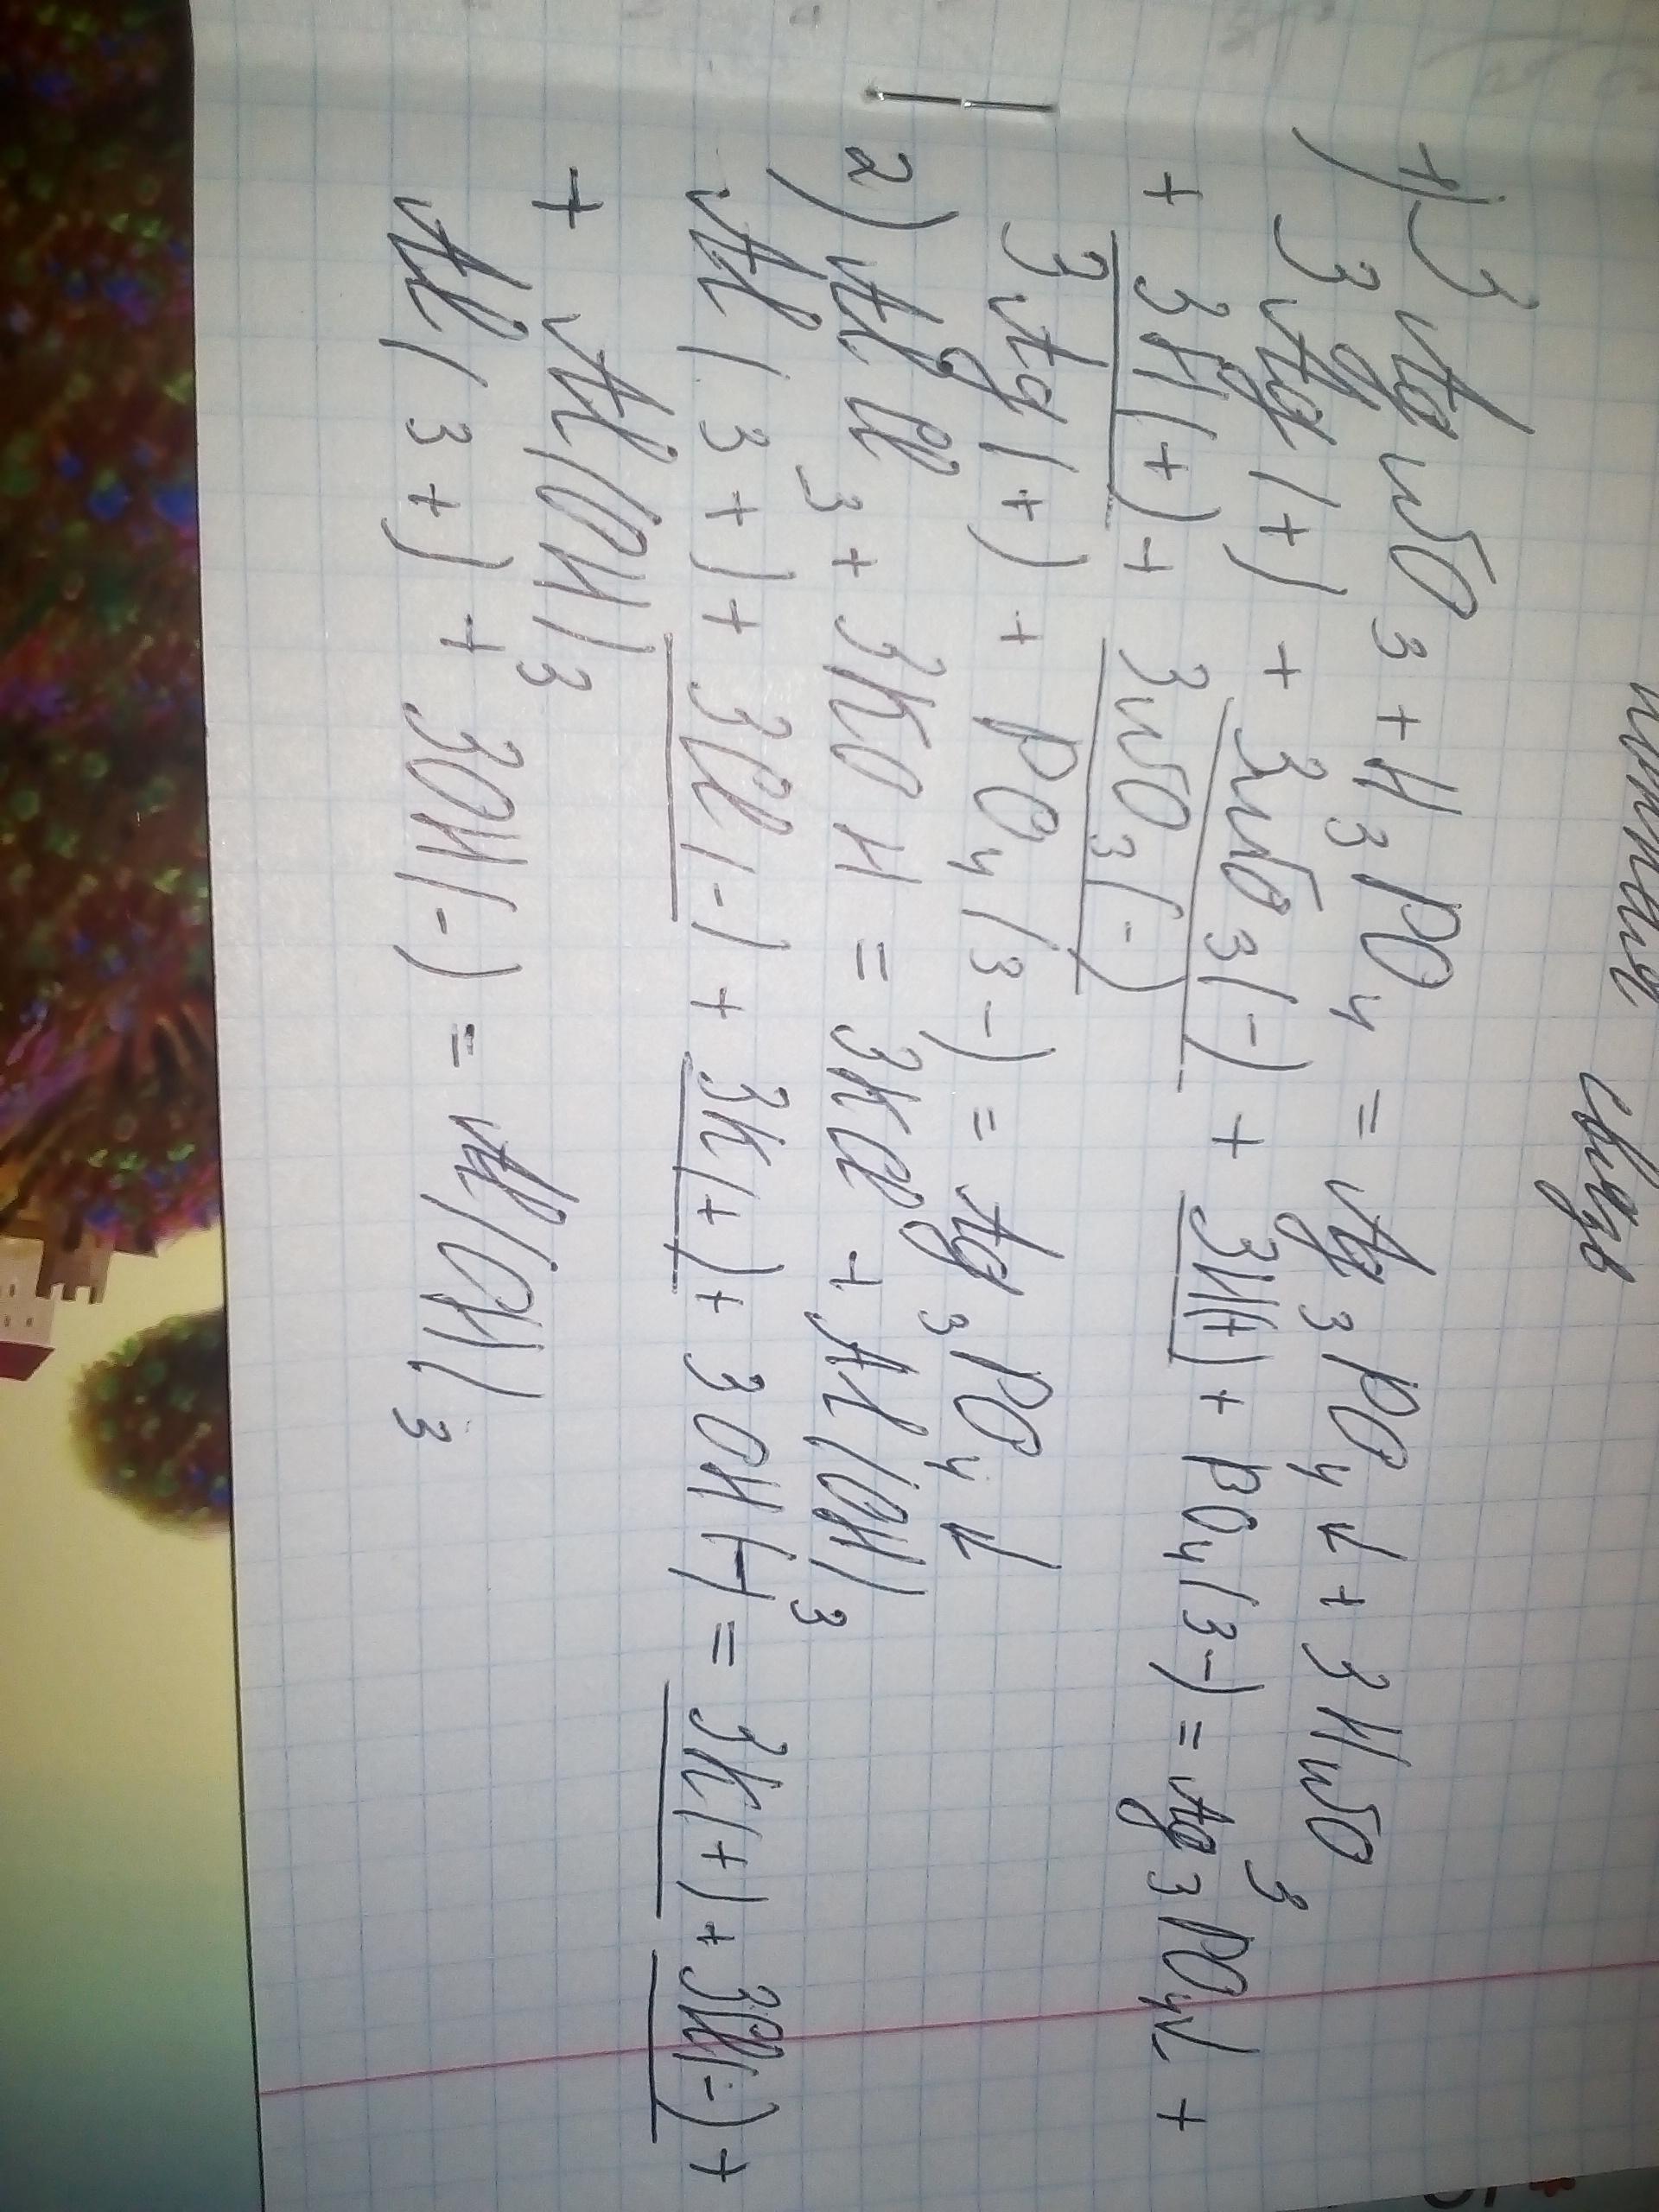 связь
1) 3AgNO3 + H3PO4 = Ag3PO4↓ + 3HNO3
3Ag(+) + 3NO3(-) + 3H(+) + PO4(3-) = Ag3PO4↓ +
+ 3H(+) + 3NO3(-)
3Ag(+) + PO4(3-) = Ag3PO4↓
2) AlCl3 + 3KOH = 3KCl + Al(OH)3
Al(3+) + 3Cl(-) + 3K(+) + 3OH(-) = 3K(+) + 3Cl(-) +
+ Al(OH)3
Al(3+) + 3OH(-) = Al(OH)3